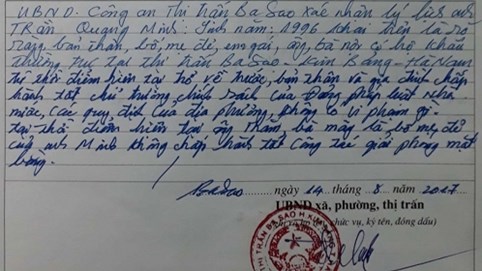 UBND. Công an Thị Trấn Ba Sao xác nhận lý lịch anh
TRẦN Quang Minh: Sinh năm: 1996 khai trên là rõ
ràng, bản thân, bố, mẹ đẻ, em gái, ông, bà nội có hộ khẩu
thường trú tại thị trấn Ba Sao - Kim Bảng - Hà Nam
Từ thời điểm hiện tại trở về trước, bản thân và gia đình chấp
hành tốt chủ trương chính sách của Đảng pháp luật nhà
nước, các quy định của địa phương không có vi phạm gì.
tại thời điểm hiện tại ông Thắm, bà mừng là bố mẹ đẻ
của anh Minh không chấp hành tốt công tác giải phóng mặt
bằng.
Ba Sao ngày 14 tháng 8 năm 2017
UBND xã, phường, thị trấn
chức vụ, ký tên, đóng dấu)
THỊ TRẤN BA SAO H KIM